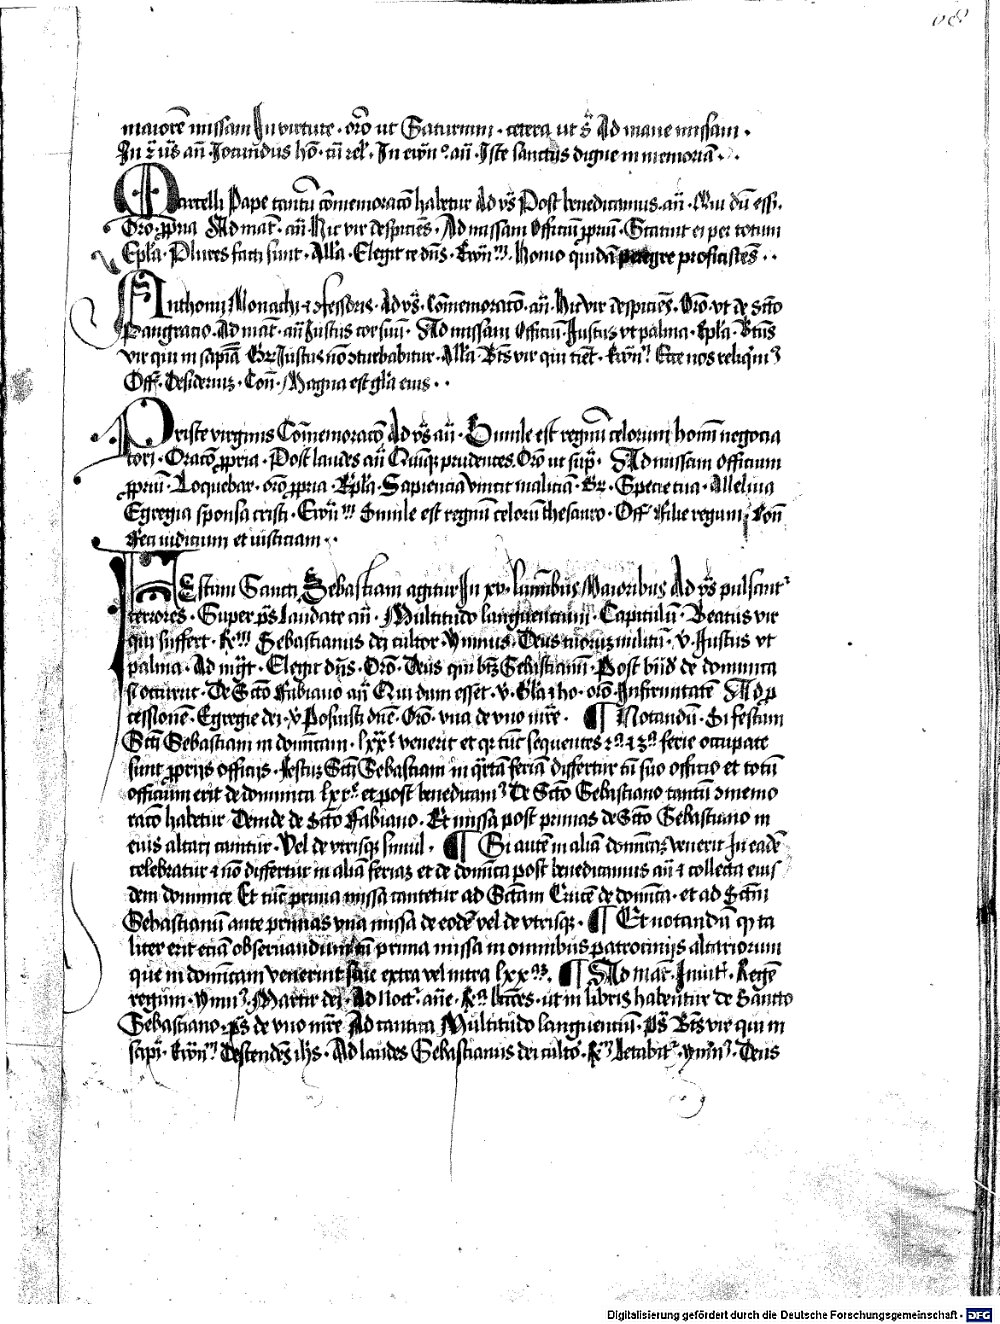 maiorē missam In virtute · orō ut Saturnini · cetera ut s̄ Ad mane missam ·
an̄ Iocundus hō · Iste sanctus digne in memoriā · ·
Marcelli Pape tantū cōmemoracō habetur Ad vs̄ Post benedicamus · an̄ · Qui dū ess; ·
Orō · ꝓpria Ad mat̄ · an̄ Hic vir despiciēs · Ad missam Officiū ꝓpriū · Statuit ei per totum
Epl̄a · Plures facti sunt · All̄a · Elegit te dn̄s · Homo quidā peregre proficiscēs · ·
Anthonij Monachi Ad vs̄ · Cōmemoracō · an̄ · Hic vir despiciēs · Orō · vt de Scō
Pangracio · Ad mat̄ · an̄ Iustus cor suū · Ad missam Officiū · Iustus vt palma · Epl̄a · Bt̄us
vir qui in sapiā Iustus nō ꝯturbabitur · All̄a · Bt̄s vir qui timet · Ecce nos reliquimꝰ
Off̄ · Desideriuꝫ · Com̄ · Magna est gl̄a eius · ·
Priste virginis Cōmemoracō Ad vs̄ an̄ · Simile est regnū celorum homī negocia
tori · Oracō ꝓpria · Post laudes an̄ Quinqꝫ prudentes. Orō ut sup̄ · Ad missam officium
ꝓpriū · Loquebar · orō ꝓpria · Epl̄a · Sapiencia vincit maliciā · Gr̄ · Specie tua · Alleluia
Egregia sponsa cristi · Simile est regnū celorū thesauro · Off̄ · Filie regum · Com̄
feci iudicium et iusticiam · ·
Festum Sancti Sebastiani agitur In xv · luminibus Maioribus Ad vs̄ pulsantr
terrores · Super ps̄ Laudate an̄ · Multitudo languentium · Capitulū · Beatus vir
qui suffert · Sebastianus dei cultor · Ymnus · Deus tuoruꝫ militū · v · Iustus vt
palma · Ad mg̅t · Elegit dn̄s · Orō · Deus qui Sebastianū · Post bn̄d de dominica
si occurrit · De Scō Fabiano an̄ Qui dum essēt · v · orō · Infirmitatē Ad ꝓ
cessionē · Egregie dei · v̄ Posuisti dn̄e · Orō · vna de vno mr̄e · ¶ Notandū · Si festum
Scī Sebastiani in domīcam · lxxᵉ venerit et qꝛ tūc sequentes 2ᵃ et 3ᵃ ferie occupate
sunt ꝓprijs officijs · Festuꝫ Scī Sebastiani in qr̄ta feriā differtur cū suo officio et totū
officium erit de dominica lxxᵉ · et post benedicamꝰ De Scō Sebastiano tantū ꝯmemo
racō habetur Deinde de Scō Fabiano · Et missa post primas de Scō Sebastiano in
eius altari canitur · Vel de vtrisqꝫ simul · ¶ Si autē in aliā domīcaꝫ venerit In eadē
celebratur et nō differtur in aliā feriaꝫ et de domīca post benedicamus an̄ et collecta eius
dem dominice Et tūc prima missa cantetur ad Sctam Crucē de domīca · et ad Sctm̄
Sebastianū ante primas vna missa de eodē vel de vtrisqꝫ · ¶ Et notandū qꝫ ta
liter erit eciā obseruandum cū prima missa in omnibus patrocinijs altariorum
que in domīcam venerint siue extra vel intra lxxᵃᵐ · ¶ Ad mat̄ · Inuit̄ · Regē
regum · Ymnꝰ · Martir dei · Ad noct̄ · ane · ut in libris habentur de Sancto
Sebastiano · ps̄ de vno mr̄e Ad cantica Multitudo languentiū · ps̄ Bt̄s vir qui in
sapi · Descendēs ih̄s · Ad laudes Sebastianus dei culto · Letabitr · ymnꝰ · Deus
Digitalisierung gefördert durch die Deutsche Forschungsgemeinschaft · DFG